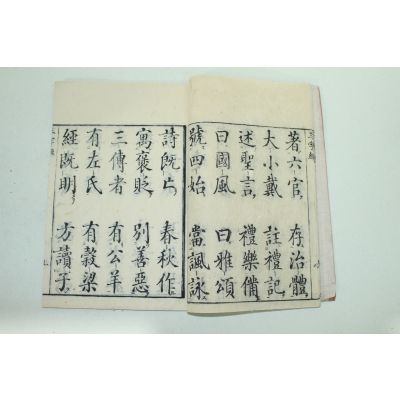 著六官 存治體
大小戴 註禮記
述聖言 禮樂備
曰國風 曰雅頌
號四始 當諷詠
詩既亾 春秋作
寓褒貶 別善惡
三傳者 有公羊
有左氏 有穀梁
經既明 方讀子